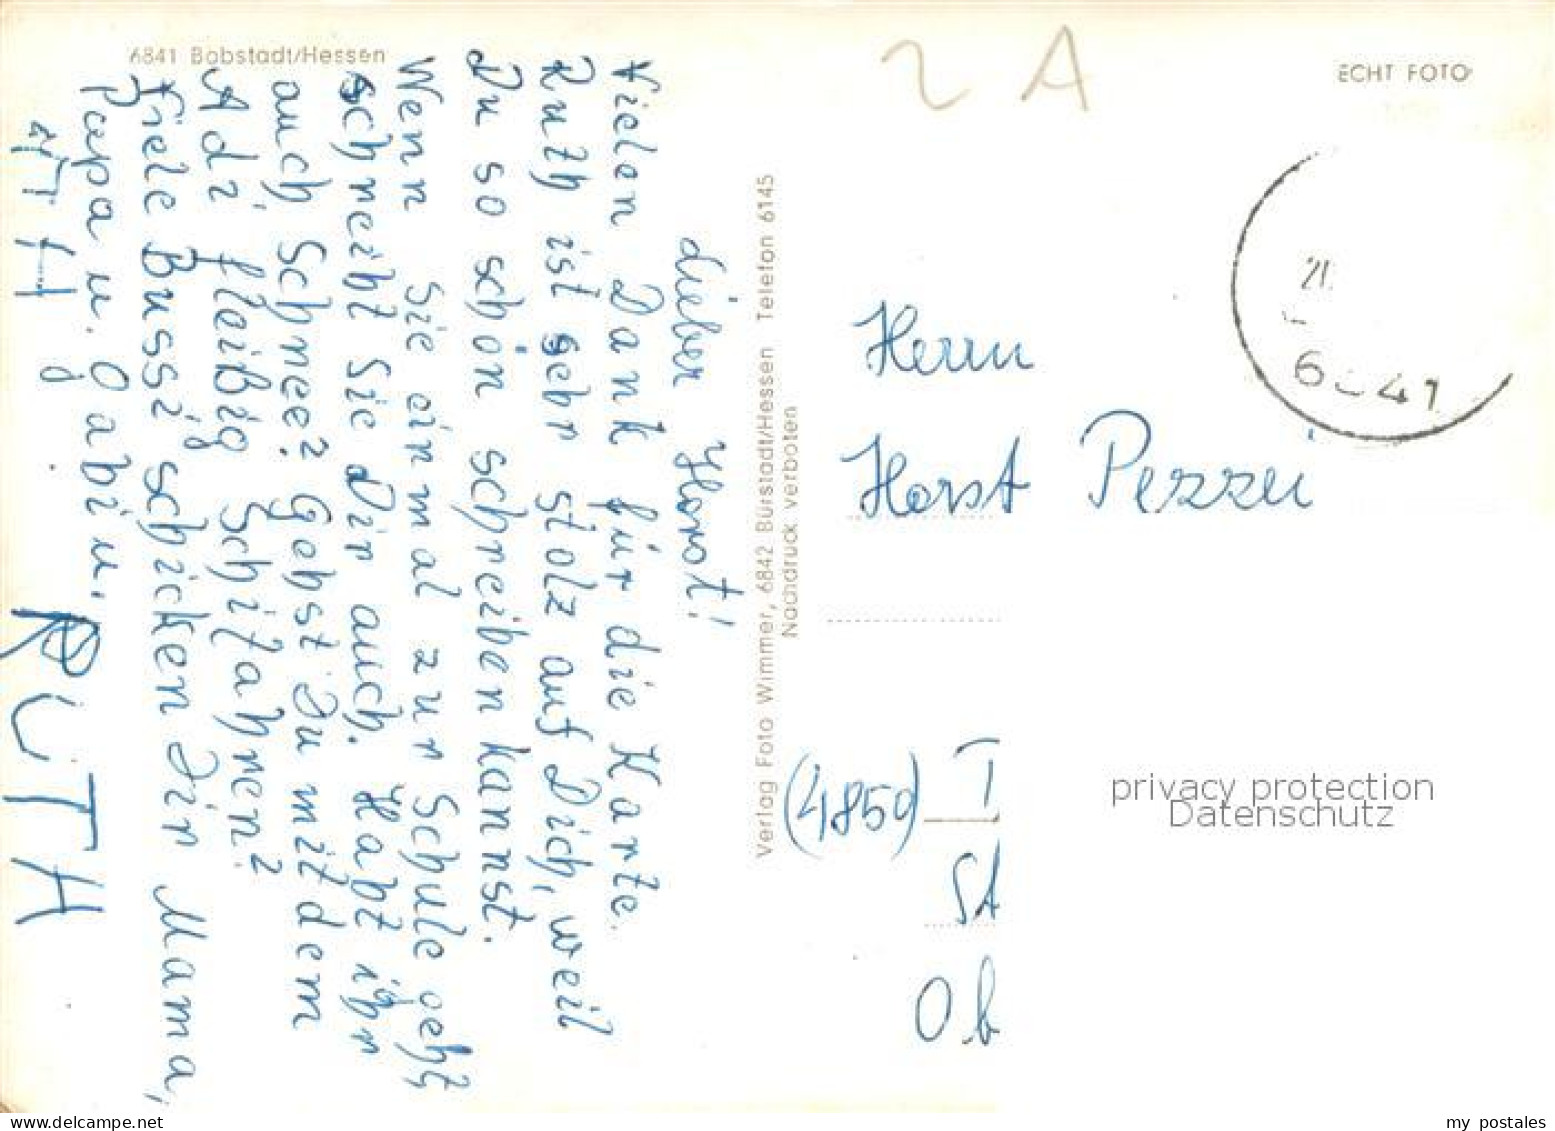 6841 Bobstadt/Hessen
ECHT FOTO
2 A
Lieber Horst!
Vielen Dank für die Karte.
Ruth ist sehr stolz auf Dich, weil
Du so schön schreiben kannst.
Wenn Sie einmal zur Schule geht,
schreibt Sie Dir auch. Habt ihr
auch Schnee? Gehst Du mit dem
Adi fleißig Schifahren?
Viele Bussi schicken Dir Mama,
Papa u.
RUTH
Verlag Foto Wimmer, 6842 Bürstadt/Hessen Telefon 6145
Nachdruck verboten
Herrn
Horst Pezzei
(4850) T
St
Ob
privacy protection
Datenschutz
my postales